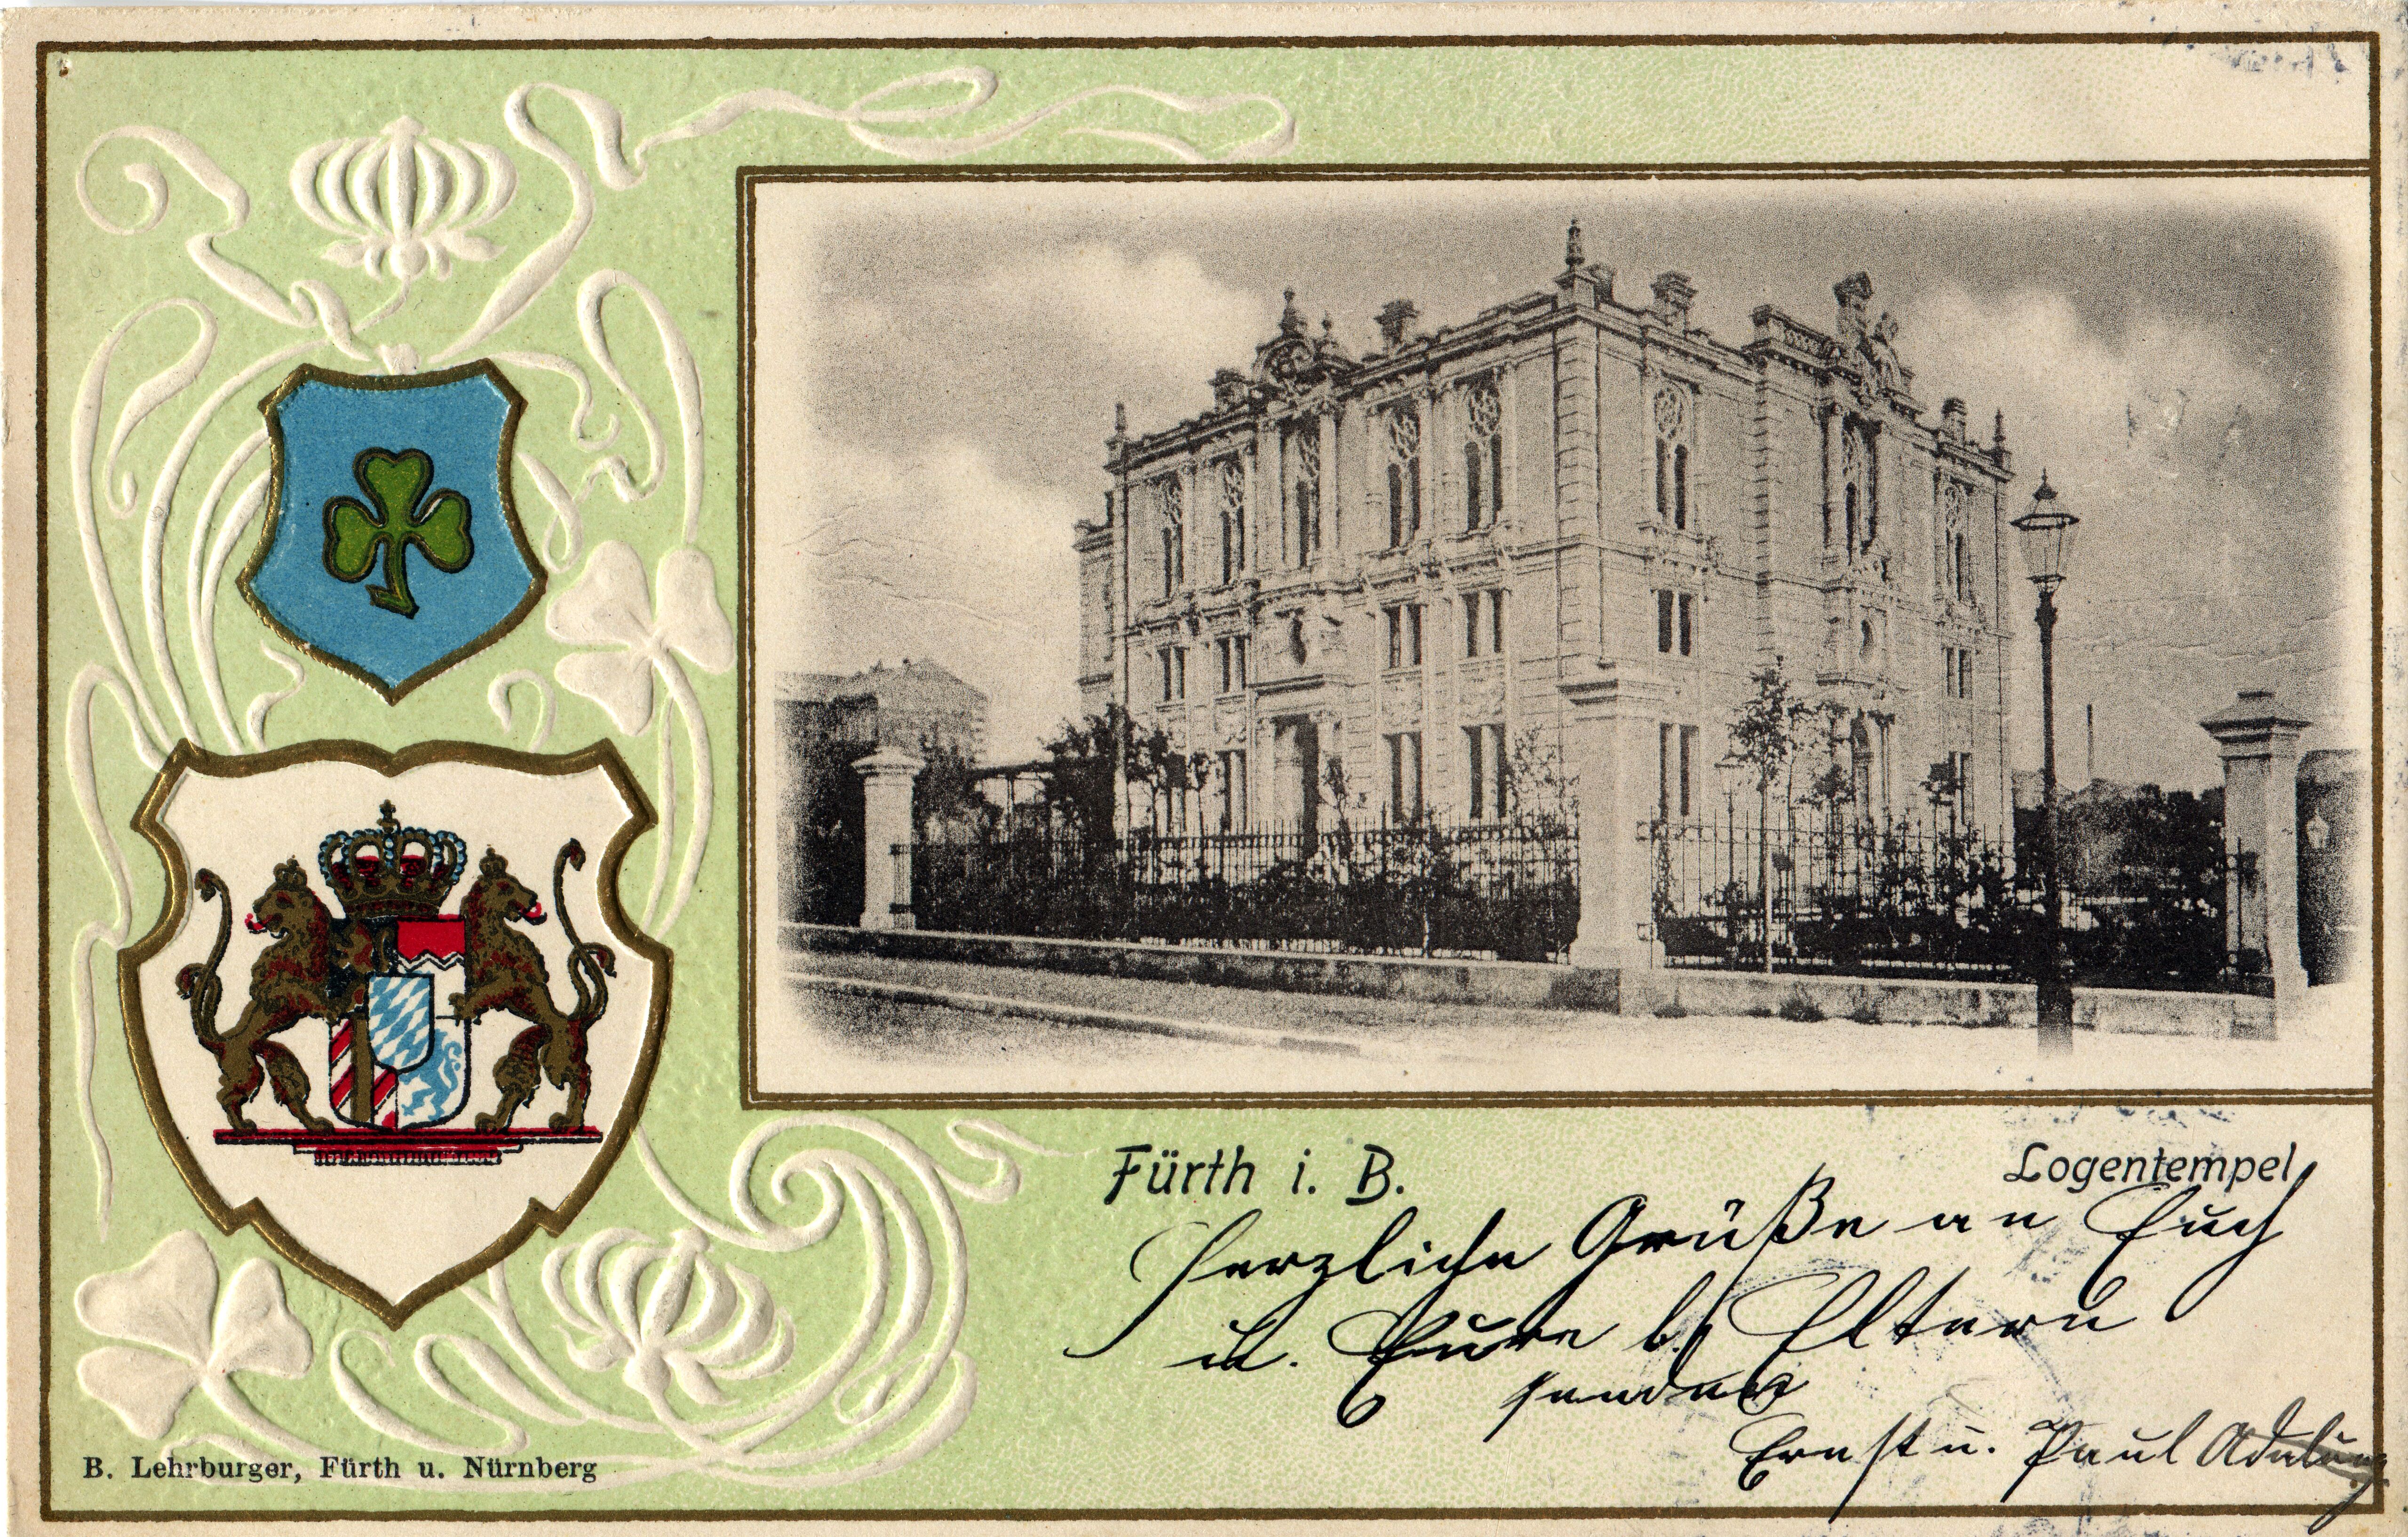 Fürth i. B.
Logentempel
Herzliche Grüße an Euch
u. Eure b. Eltern
senden
Ernst u. Paul Adelung
B. Lehrburger, Fürth u. Nürnberg